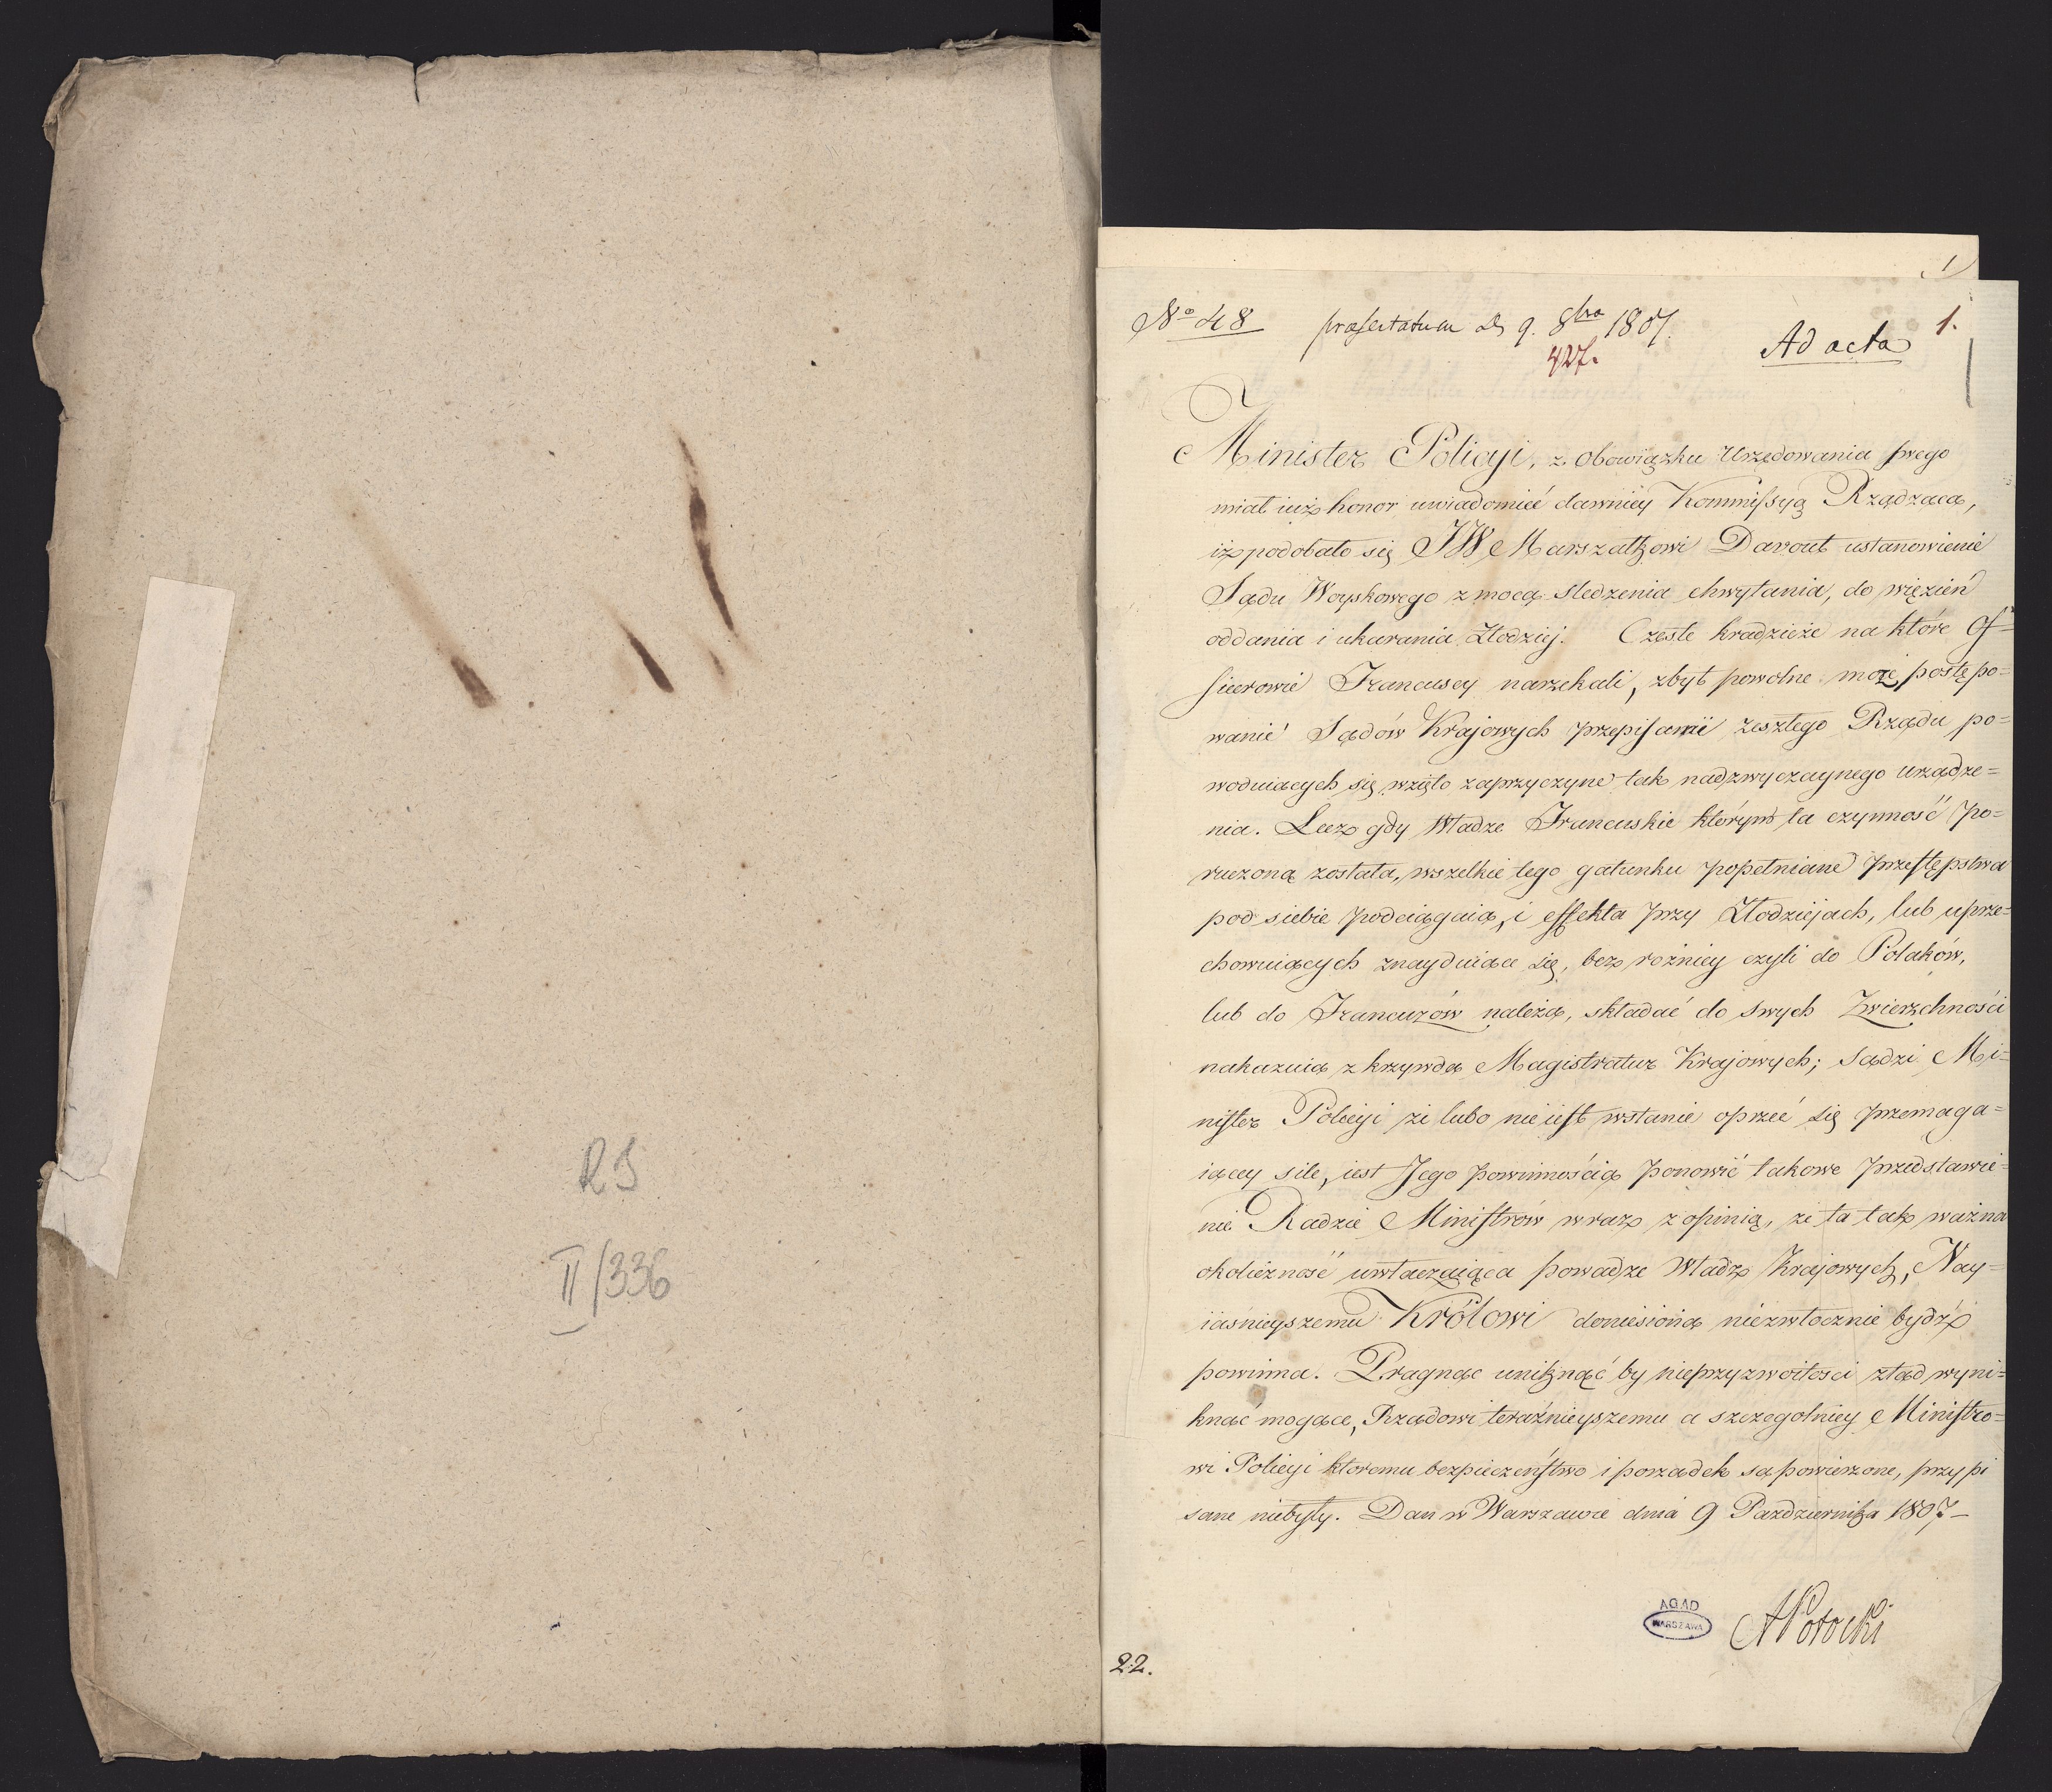 RS
II/336
1
No 48 praesentatum d. 9. 8bra 1807. Ad acta 1.
427.
Minister Policyi, z obowiązku Urzędowania swego
miał iuż honor uwiadomić dawniey Kommissyą Rządzącą,
iż podobało się JW Marszałkowi Davout ustanowienie
Sądu Woyskowego z mocą śledzenia chwytania, do więzień
oddania i ukarania Złodziej. Częste kradzieże na które Of=
ficerowie Francuscy narzekali, zbyt powolne może postępo=
wanie Sądów Krajowych przepisami zeszłego Rządu po=
woduiących się wzięto za przyczynę tak nadzwyczaynego urządze=
nia. Lecz gdy Władze Francuskie którym ta czynność po=
ruczoną została, wszelkie tego gatunku popełniane przestępstwa
pod siebie podciągaią, i effekta przy Złodziejach, lub uprze=
chowuiących znayduiące się, bez rożnicy czyli do Polaków,
lub do Francuzów należą, składać do swych Zwierzchności
nakazuią z krzywdą Magistratur Krajowych; sądzi Mi=
nister Policyi że lubo nie iest wstanie oprzeć się przemaga=
iącey sile, iest Jego powinnością ponowić takowe przedstawie=
nie Radzie Ministrów wraz z opinią, że ta tak ważna
okoliczność uwłaczaiąca powadze Władz Krajowych, Nay=
iaśnieyszemu Królowi doniesioną niezwłocznie bydź
powinna. Pragnąc uniknąć by nieprzyzwoitości ztąd wyni=
knąć mogące, Rządowi teraźnieyszemu a szczegolniey Ministro=
wi Policyi ktoremu bezpieczeństwo i porządek są powierzone, przypi
sane niebyły. Dan w Warszawie dnia 9 Pazdziernika 1807 –
AGAD
WARSZAWA
APotocki
22.